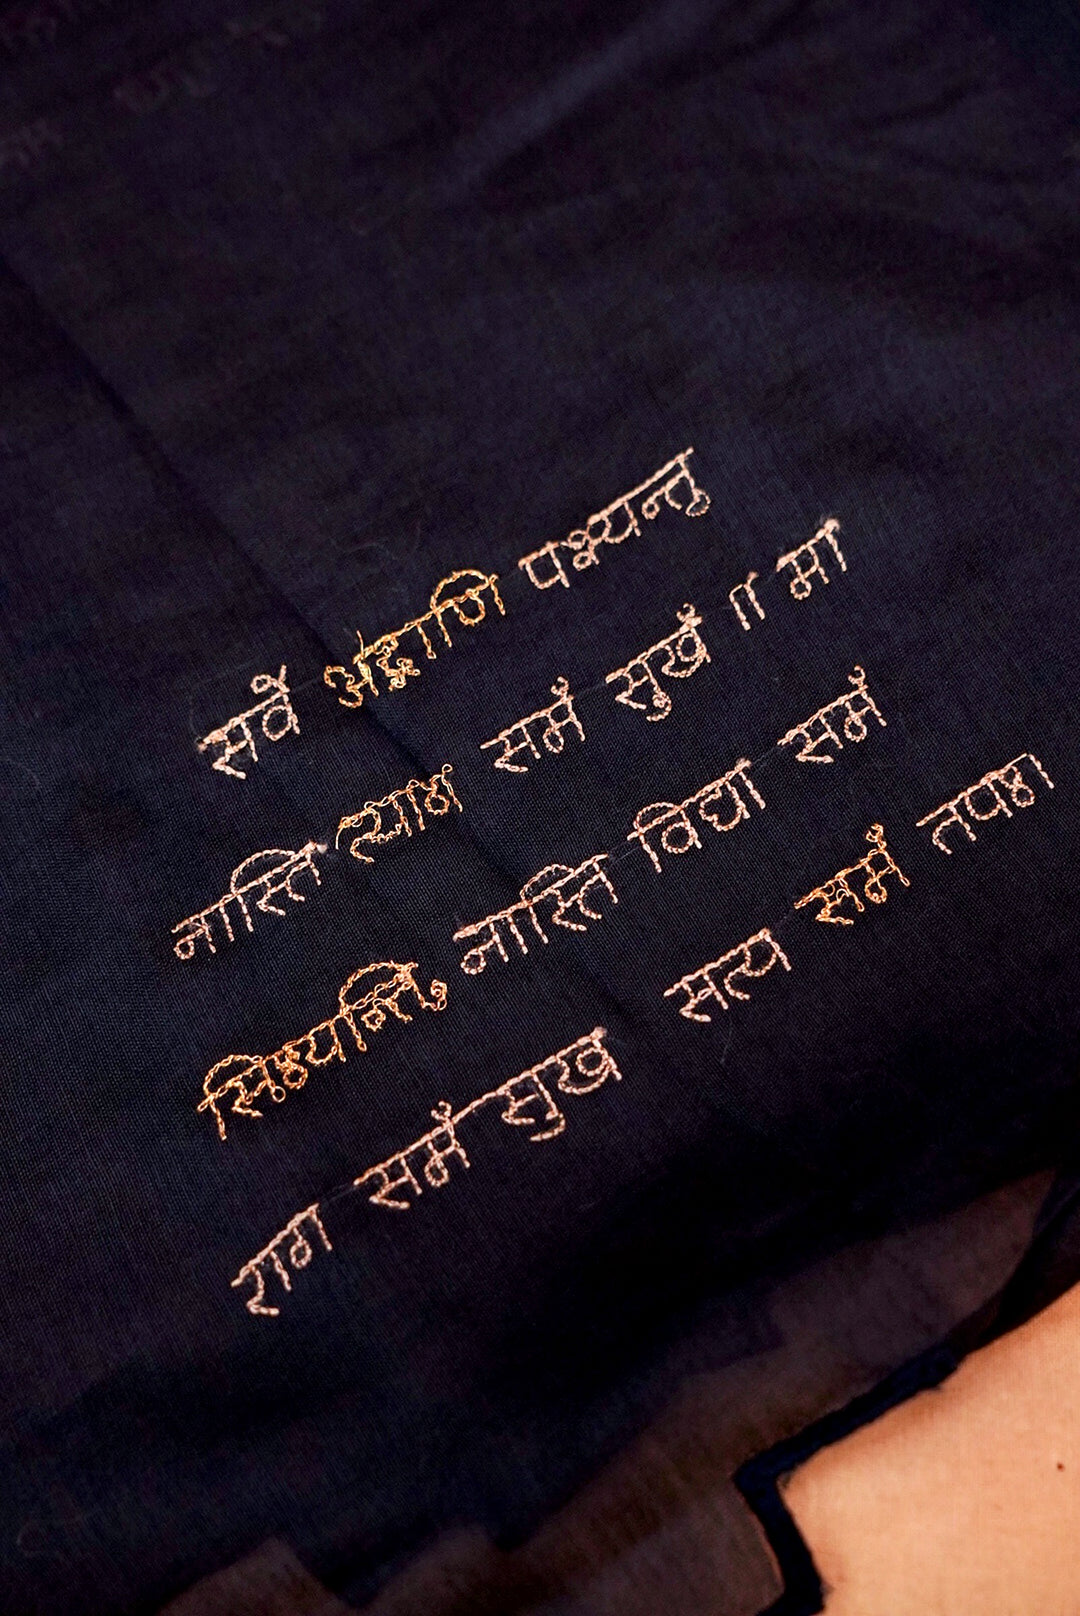 सर्वे भद्राणि पश्यन्तु
नास्ति त्याग समं सुखं ॥ मा
सिध्यन्ति नास्ति विद्या समं
सत्य समं तप
राग समं सुख